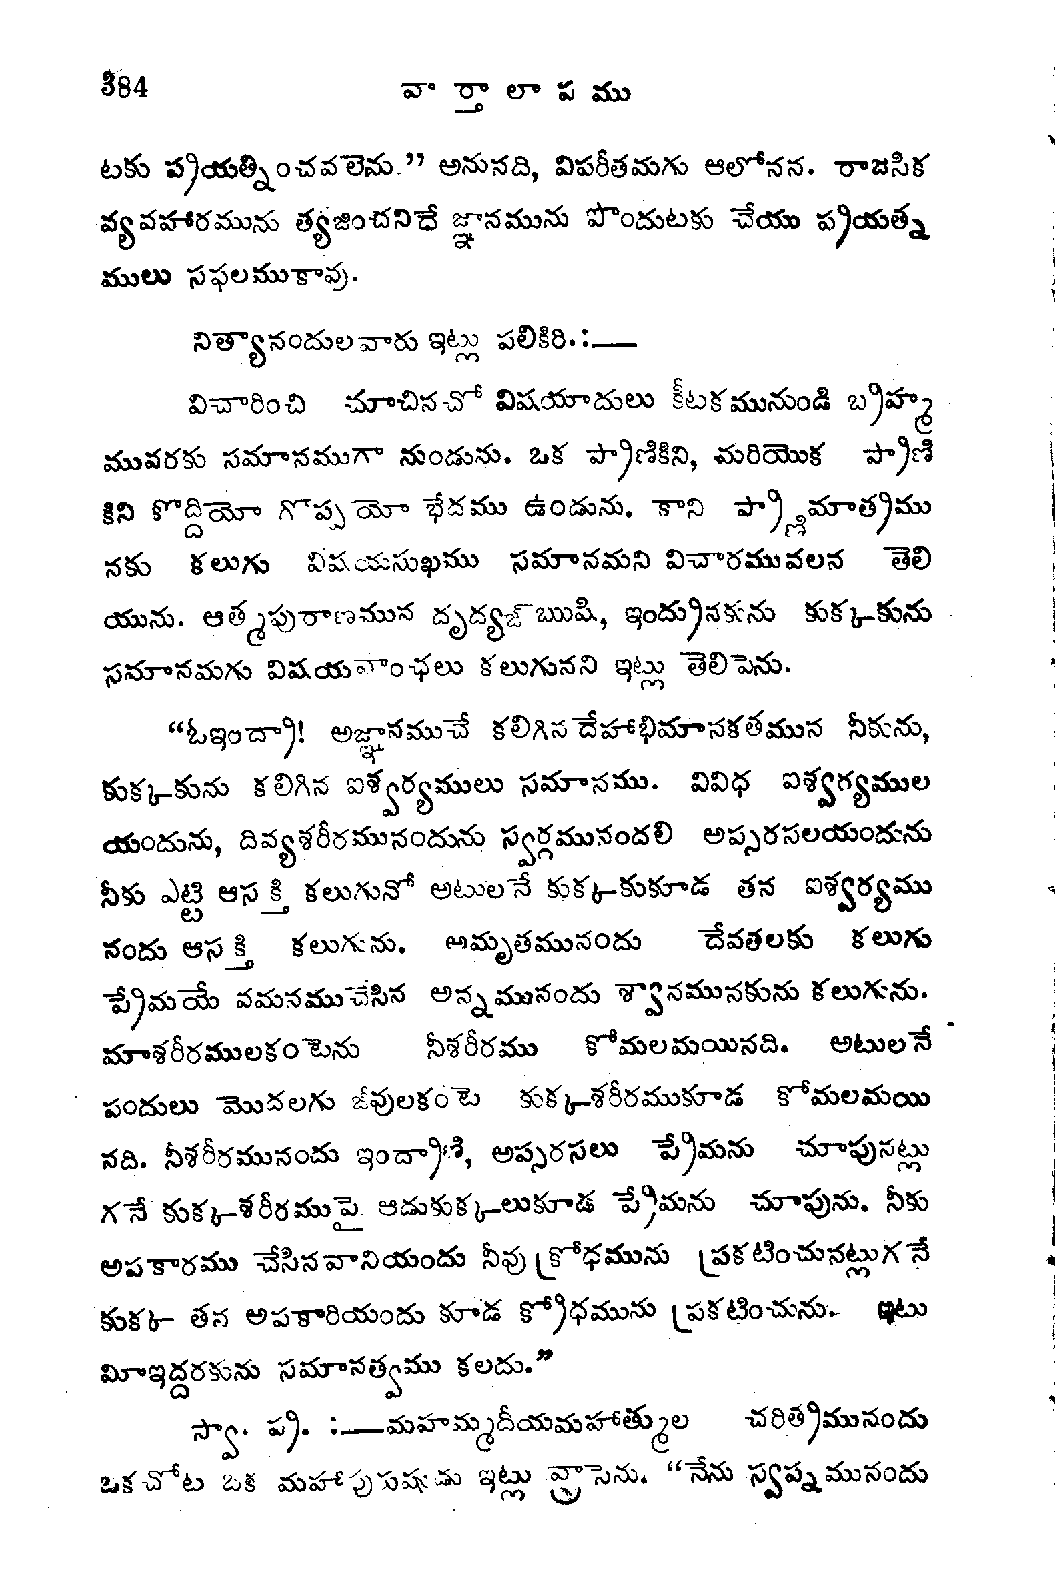 384 వార్తాలాపము
టకు ప్రయత్నించవలెను.” అనునది, విపరీతమగు ఆలోచన. రాజసిక
వ్యవహారమును త్యజించనిదే జ్ఞానమును పొందుటకు చేయు ప్రయత్న
ములు సఫలముకావు.
నిత్యానందులవారు ఇట్లు పలికిరి.:—
విచారించి చూచినచో విషయాదులు కీటకమునుండి బ్రహ్మ
మువరకు సమానముగా నుండును. ఒక ప్రాణికిని, మరియొక ప్రాణి
కిని కొద్దియో గొప్పయో భేదము ఉండును. కాని ప్రాణిమాత్రము
నకు కలుగు విషయసుఖము సమానమని విచారమువలన తెలి
యును. ఆత్మపురాణమున దృద్యజ్ ఋషి, ఇంద్రునకును కుక్కకును
సమానమగు విషయవాంఛలు కలుగునని ఇట్లు తెలిపెను.
“ఓఇంద్రా! అజ్ఞానముచే కలిగినదేహాభిమానకతమున నీకును,
కుక్కకును కలిగిన ఐశ్వర్యములు సమానము. వివిధ ఐశ్వర్యముల
యందును, దివ్యశరీరమునందును స్వర్గమునందలి అప్సరసలయందును
నీకు ఎట్టి ఆసక్తి కలుగునో అటులనే కుక్కకుకూడ తన ఐశ్వర్యము
నందు ఆసక్తి కలుగును. అమృతమునందు దేవతలకు కలుగు
ప్రేమయే వమనముచేసిన అన్నమునందు శ్వానమునకును కలుగును.
మాశరీరములకంటెను నీశరీరము కోమలమయినది. అటులనే
పందులు మొదలగు జీవులకంటె కుక్కశరీరముకూడ కోమలమయి
నది. నీశరీరమునందు ఇంద్రాణి, అప్సరసలు ప్రేమను చూపునట్లు
గనే కుక్కశరీరముపై ఆడుకుక్కలుకూడ ప్రేమను చూపును. నీకు
అపకారము చేసినవానియందు నీవు క్రోధమును ప్రకటించునట్లుగనే
కుక్క తన అపకారియందు కూడ క్రోధమును ప్రకటించును. ఇటు
మీఇద్దరకును సమానత్వము కలదు.”
స్వా. ప్ర. :—మహమ్మదీయమహాత్ముల చరిత్రమునందు
ఒకచోట ఒక మహాపురుషుడు ఇట్లు వ్రాసెను. “నేను స్వప్నమునందు